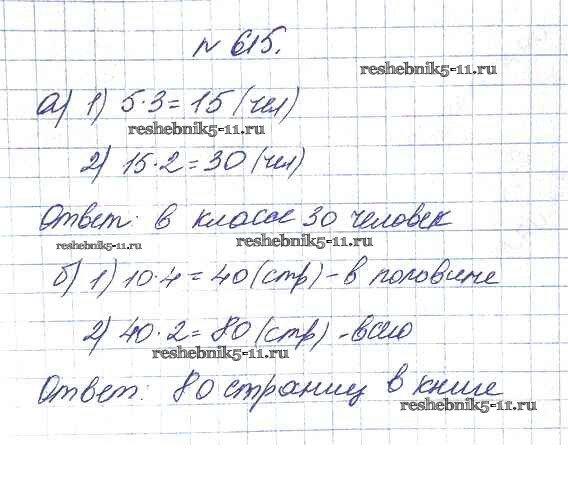 № 615.
reshebnik5-11.ru
а) 1) 5·3=15 (чел)
reshebnik5-11.ru
2) 15·2=30 (чел)
Ответ: в классе 30 человек
reshebnik5-11.ru reshebnik5-11.ru
б) 1) 10·4=40 (стр) - в половине
2) 40·2=80 (стр) - всего
reshebnik5-11.ru
Ответ: 80 страниц в книге
reshebnik5-11.ru